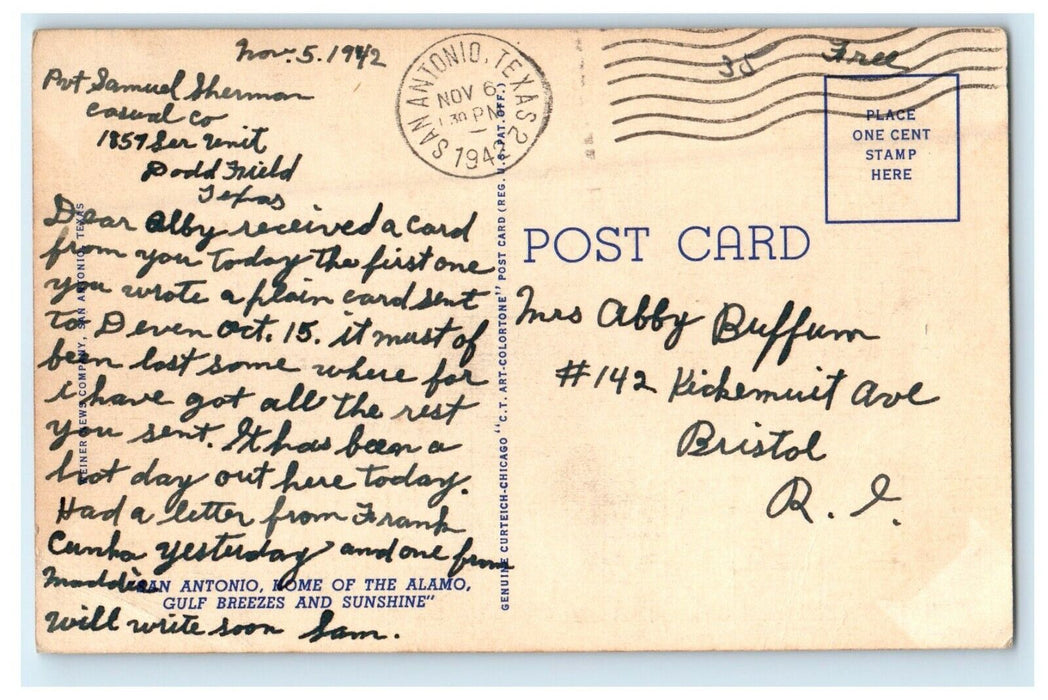 Nov. 5. 1942
Pvt Samuel Sherman
Casual Co
1857 Ser Unit
Dodd Field
Texas
Dear Abby received a card
from you today the first one
you wrote a plain card sent
to Deven Oct. 15. it must of
been lost some where for
i have got all the rest
you sent. It has been a
hot day out here today.
Had a letter from Frank
Cunha yesterday and one from
Maddie
will write soon Sam.
"SAN ANTONIO, HOME OF THE ALAMO,
GULF BREEZES AND SUNSHINE"
NEWS COMPANY, SAN ANTONIO, TEXAS
GENUINE CURTEICH-CHICAGO "C.T. ART-COLORTONE" POST CARD (REG. U.S. PAT. OFF.)
SAN ANTONIO, TEXAS 2
NOV 6
PM
1942
30
Free
PLACE
ONE CENT
STAMP
HERE
POST CARD
Mrs Abby Buffum
#142 Kickemuit Ave
Bristol
R. I.